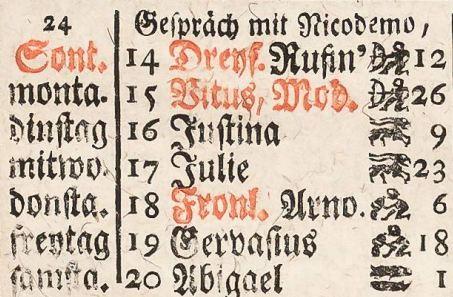 24 Gespräch mit Nicodemo,
Sont. 14 Dreyf. Rufin' 12
monta. 15 Vitus, Mod. 26
dinstag 16 Justina 9
mitwo. 17 Julie 23
donsta. 18 Fronl. Arno. 6
freytag 19 Gervasius 18
samsta. 20 Abigael 1